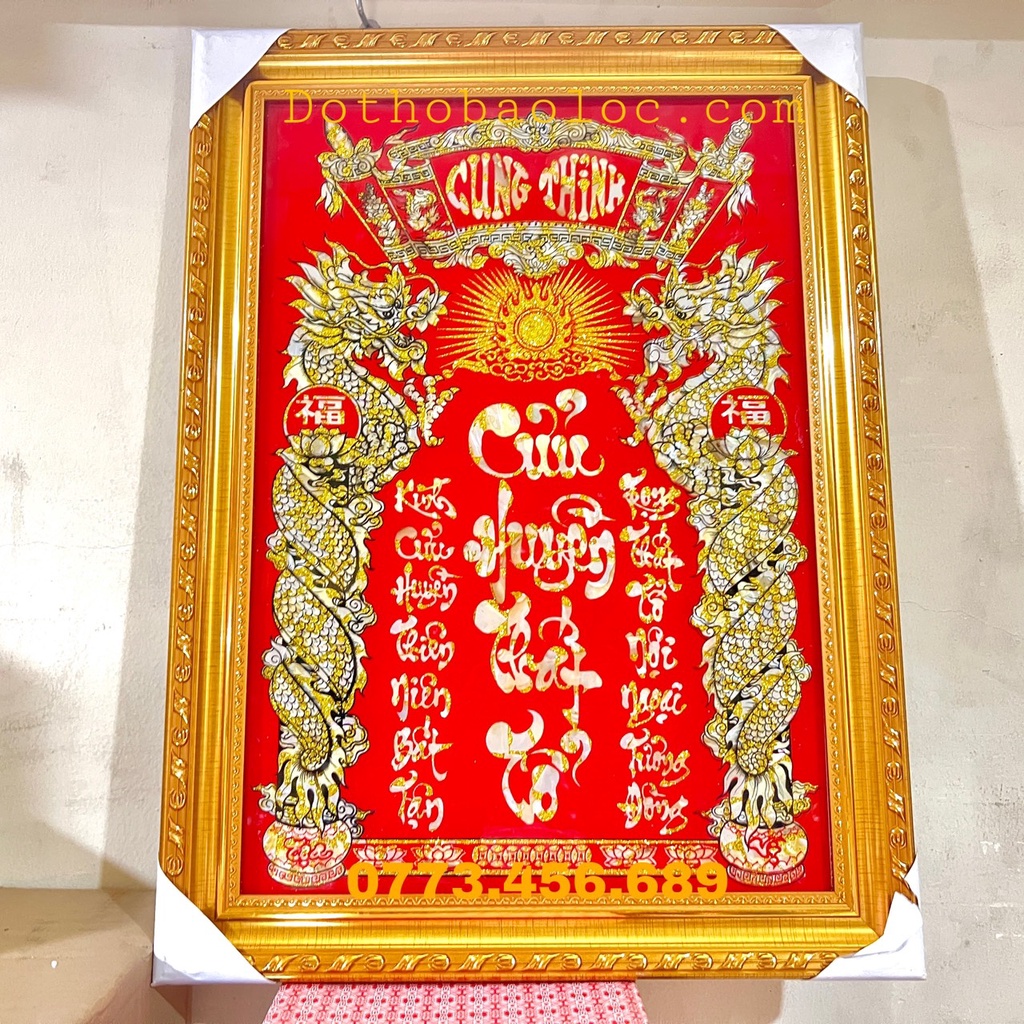 Dothobaoloc.com
CUNG THỈNH
福
福
Cửu
Huyền
Thất
Tổ
Kính
Cửu
Huyền
Thiên
Niên
Bất
Tận
Trọng
Thất
Tổ
Nội
Ngoại
Tương
Đồng
Tọa
Vị
0773.456.689